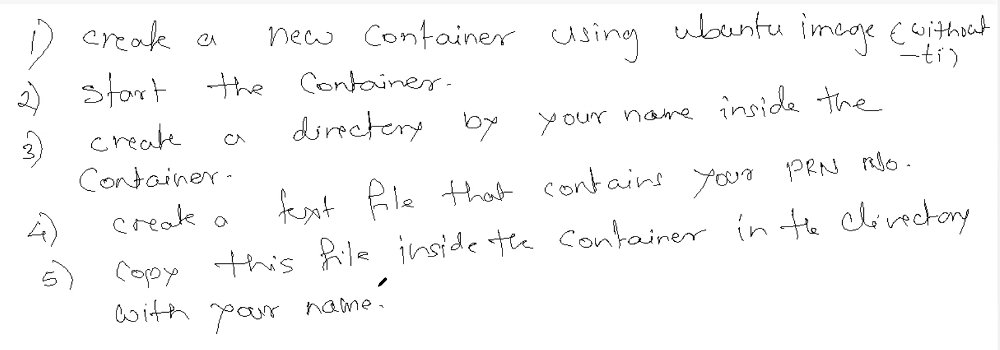 1) create a new Container using ubuntu image (without -ti)
2) start the Container.
3) create a directory by your name inside the
Container.
4) create a text file that contains your PRN No.
5) Copy this file inside the container in the directory
with your name.